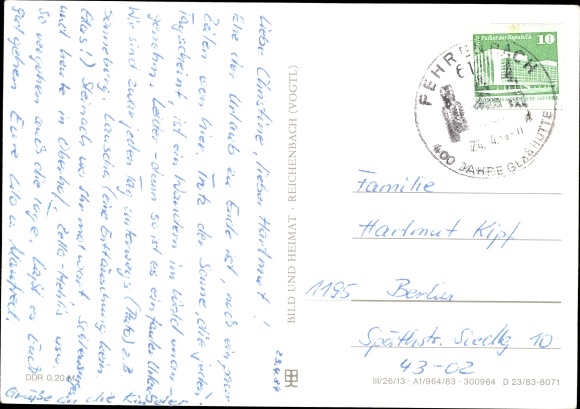 Liebe Christine, lieber Hartmut!
Ehe der Urlaub zu Ende ist, noch ein paar
Zeilen von hier. Trotz der Sonne, die jeden
Tag scheint, ist ein Wandern im Wald un-
genehm. Leider – denn so ist es ein fauler Urlaub
Wir sind zwar jeden Tag unterwegs (Auto) z.B
Sonneberg, Lauscha (eine Enttäuschung, kein
Glas!) Steinach wo Ihr mal wart, Schleusingen
und heute in Oberhof, Zella-Mehlis usw.
So vergehen auch die Tage. Laßt es Euch
gut gehen Eure Lilo u. Manfred.
Grüße an die Kinder
23.4.84
DDR 0,20 M
BILD UND HEIMAT · REICHENBACH (VOGTL)
Palast der Republik
10
FEHRENBACH
400 JAHRE GLASHÜTTE
Familie
Hartmut Kipf
1195 Berlin
Späthstr. Siedlg 10
43-02
III/26/13 · A1/964/83 · 300964 D 23/83-8071